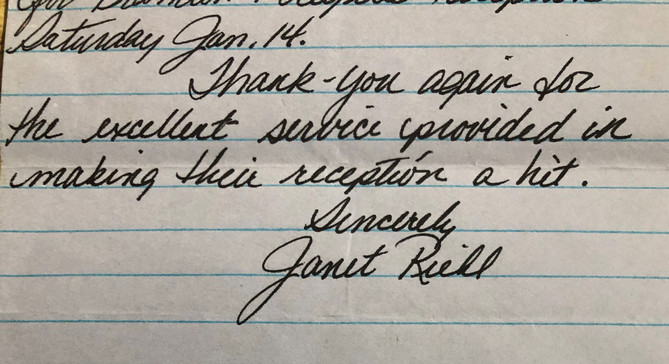 for
Saturday Jan. 14.
Thank-you again for
the excellent service provided in
making their reception a hit.
Sincerely
Janet Riehl